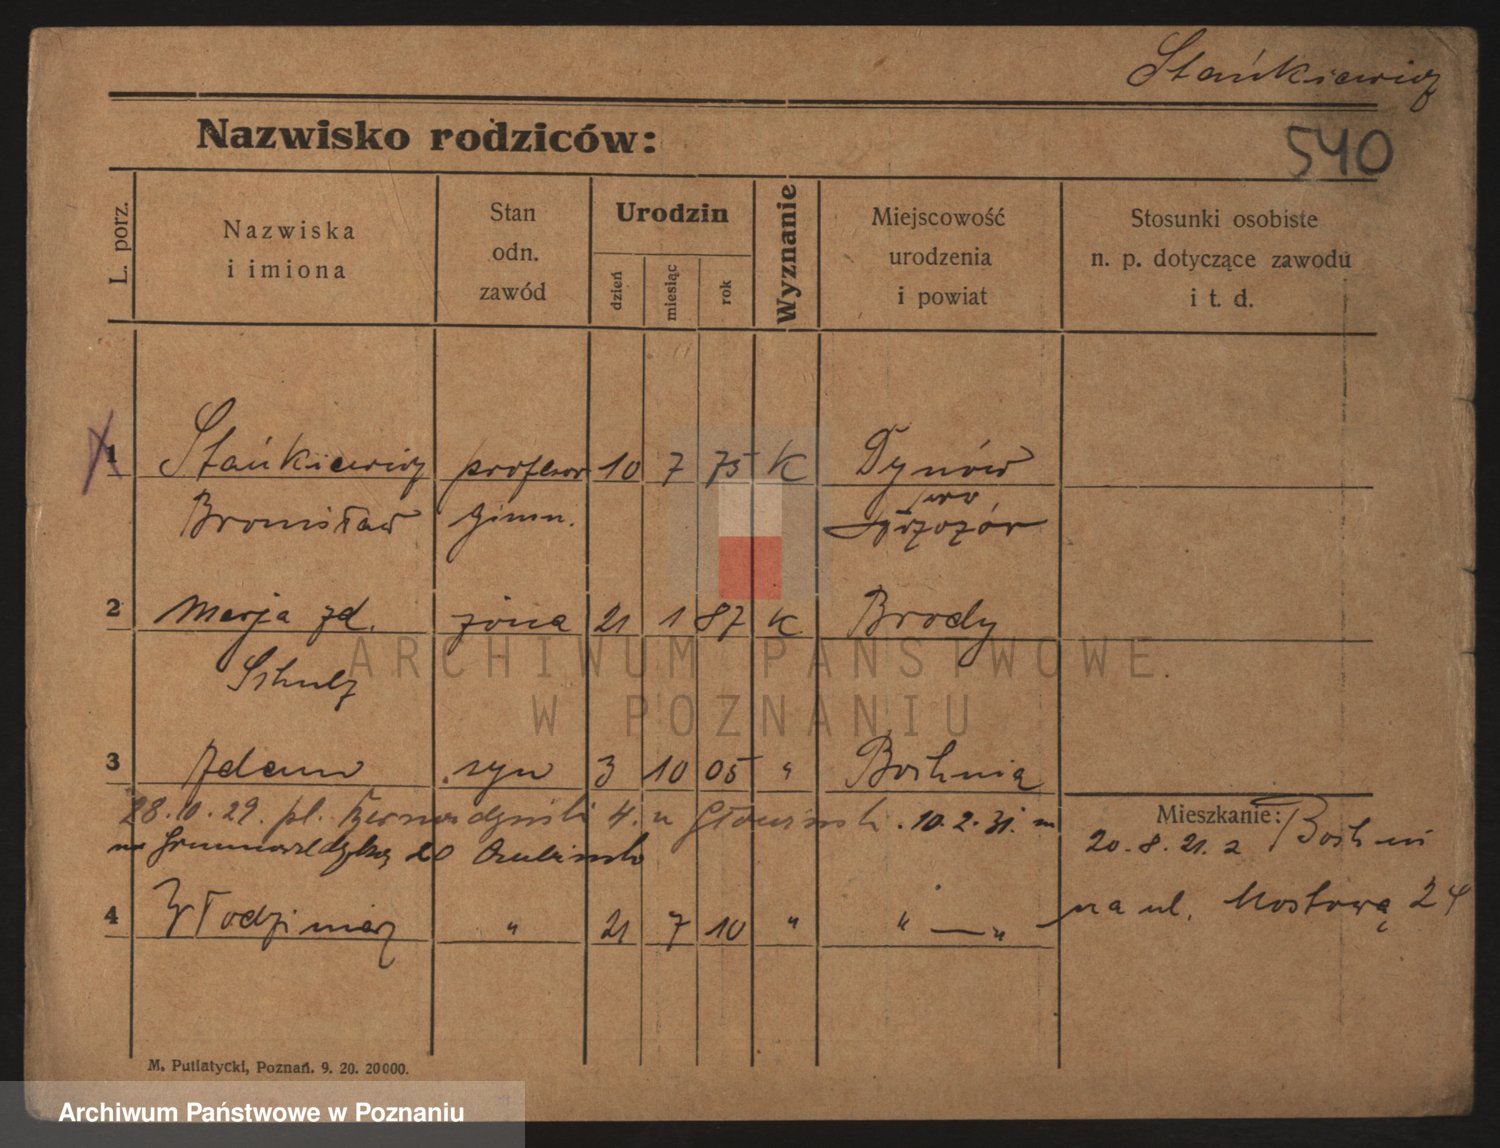 Stańkiewicz
Nazwisko rodziców:
540
L. porz.
Nazwiska
i imiona
Stan
odn.
zawód
Urodzin
dzień
miesiąc
rok
Wyznanie
Miejscowość
urodzenia
i powiat
Stosunki osobiste
n. p. dotyczące zawodu
i t. d.
1 Stańkiewicz profesor 10 7 75 K Dynów
Bronisław gimn.
2 Marja zd. żona 21 1 87 K Brody
Schulz
ARCHIWUM PAŃSTWOWE
W POZNANIU
3 Adam syn 3 10 05 " Bochnia
28.10.29. pl. Bernardyński 4. u 10.2.31.
Mieszkanie:
20.8.21. z Bochni
na Grunwaldzką 20
4 Włodzimierz " 21 7 10 " " — "
na ul. Mostową 24
M. Putiatycki, Poznań. 9. 20. 20000.
Archiwum Państwowe w Poznaniu